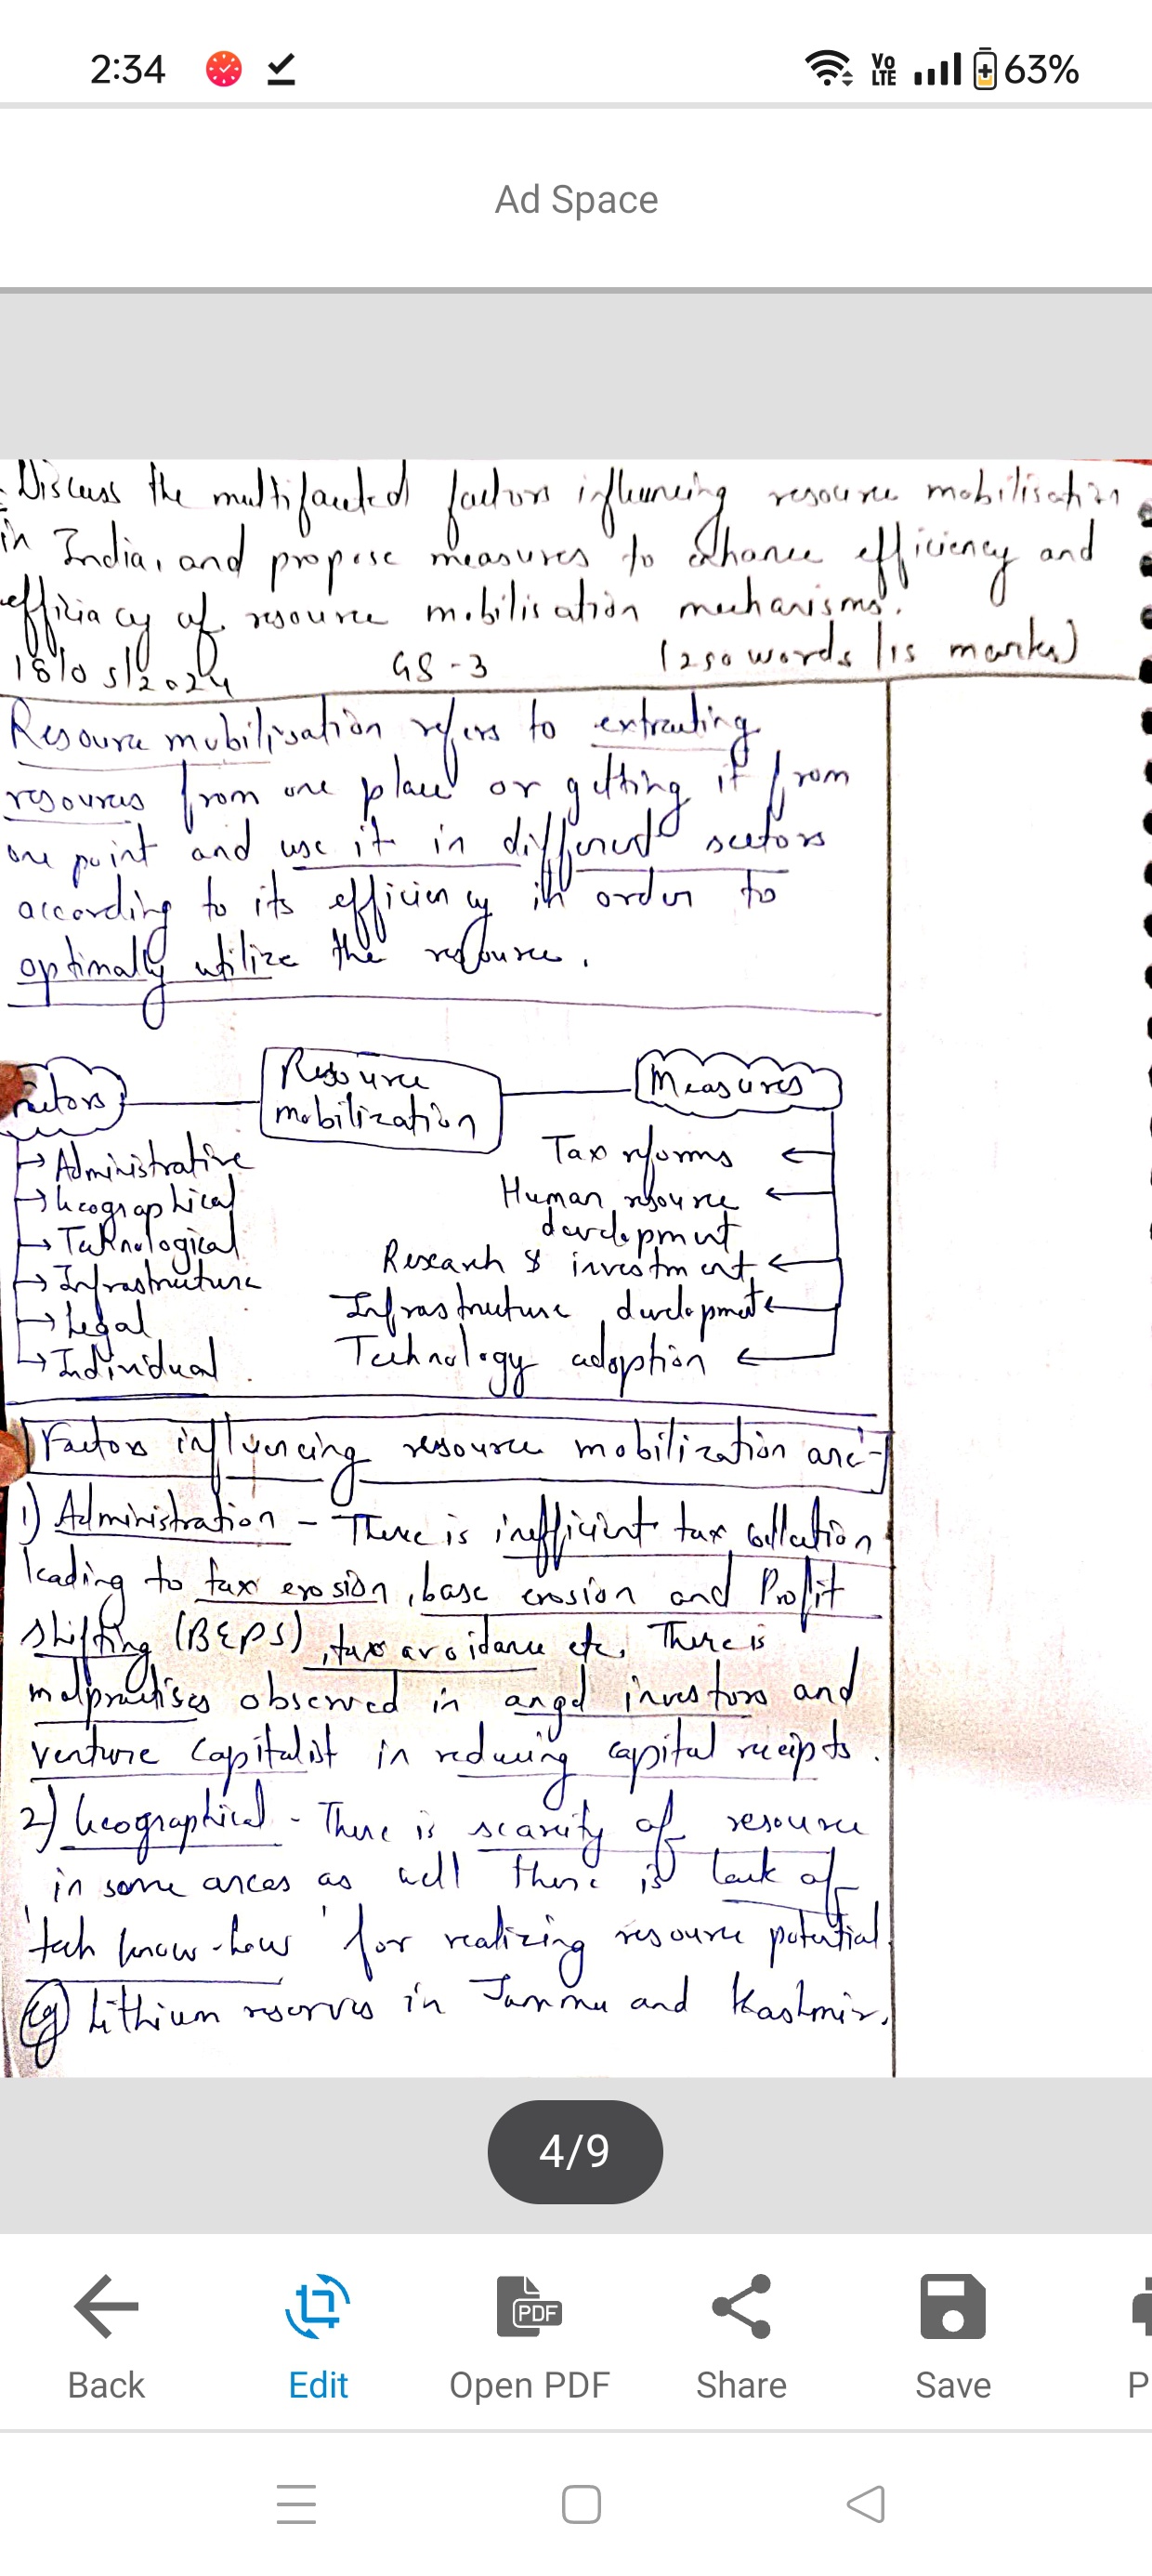 2:34
Vo LTE 63%
Ad Space
Discuss the multifaceted factors influencing resource mobilisation
in India, and propose measures to enhance efficiency and
efficiacy of resource mobilisation mechanisms.
18/05/2024 GS-3 (250 words/15 marks)
Resource mobilisation refers to extracting
resources from one place or getting it from
one point and use it in different sectors
according to its efficiency in order to
optimally utilize the resource.
Resource
mobilization
Measures
Administrative
Geographical
Technological
Infrastructure
Legal
Individual
Tax reforms
Human resource
development
Research & investment
Infrastructure development
Technology adoption
Factors influencing resource mobilization are-
1) Administration - There is inefficient tax collection
leading to tax erosion, base erosion and Profit
shifting (BEPS), tax avoidance etc. There is
malpractises observed in angel investors and
venture capitalist in reducing capital receipts.
2) Geographical - There is scarcity of resource
in some areas as well there is lack of
'tech know-how' for realizing resource potential.
eg) Lithium reserves in Jammu and Kashmir.
4/9
Back
Edit
Open PDF
Share
Save
P